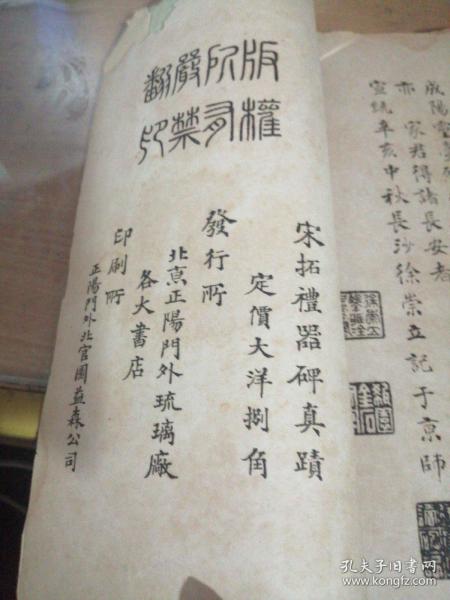 咸陽
亦家君得諸長安者
宣統辛亥中秋長沙徐崇立記于京師
版權
所有
嚴禁
翻印
宋拓禮器碑真蹟
定價大洋捌角
發行所
北京正陽門外琉璃廠
各大書店
印刷所
正陽門外北官園益森公司
孔夫子旧书网
www.kongfz.com